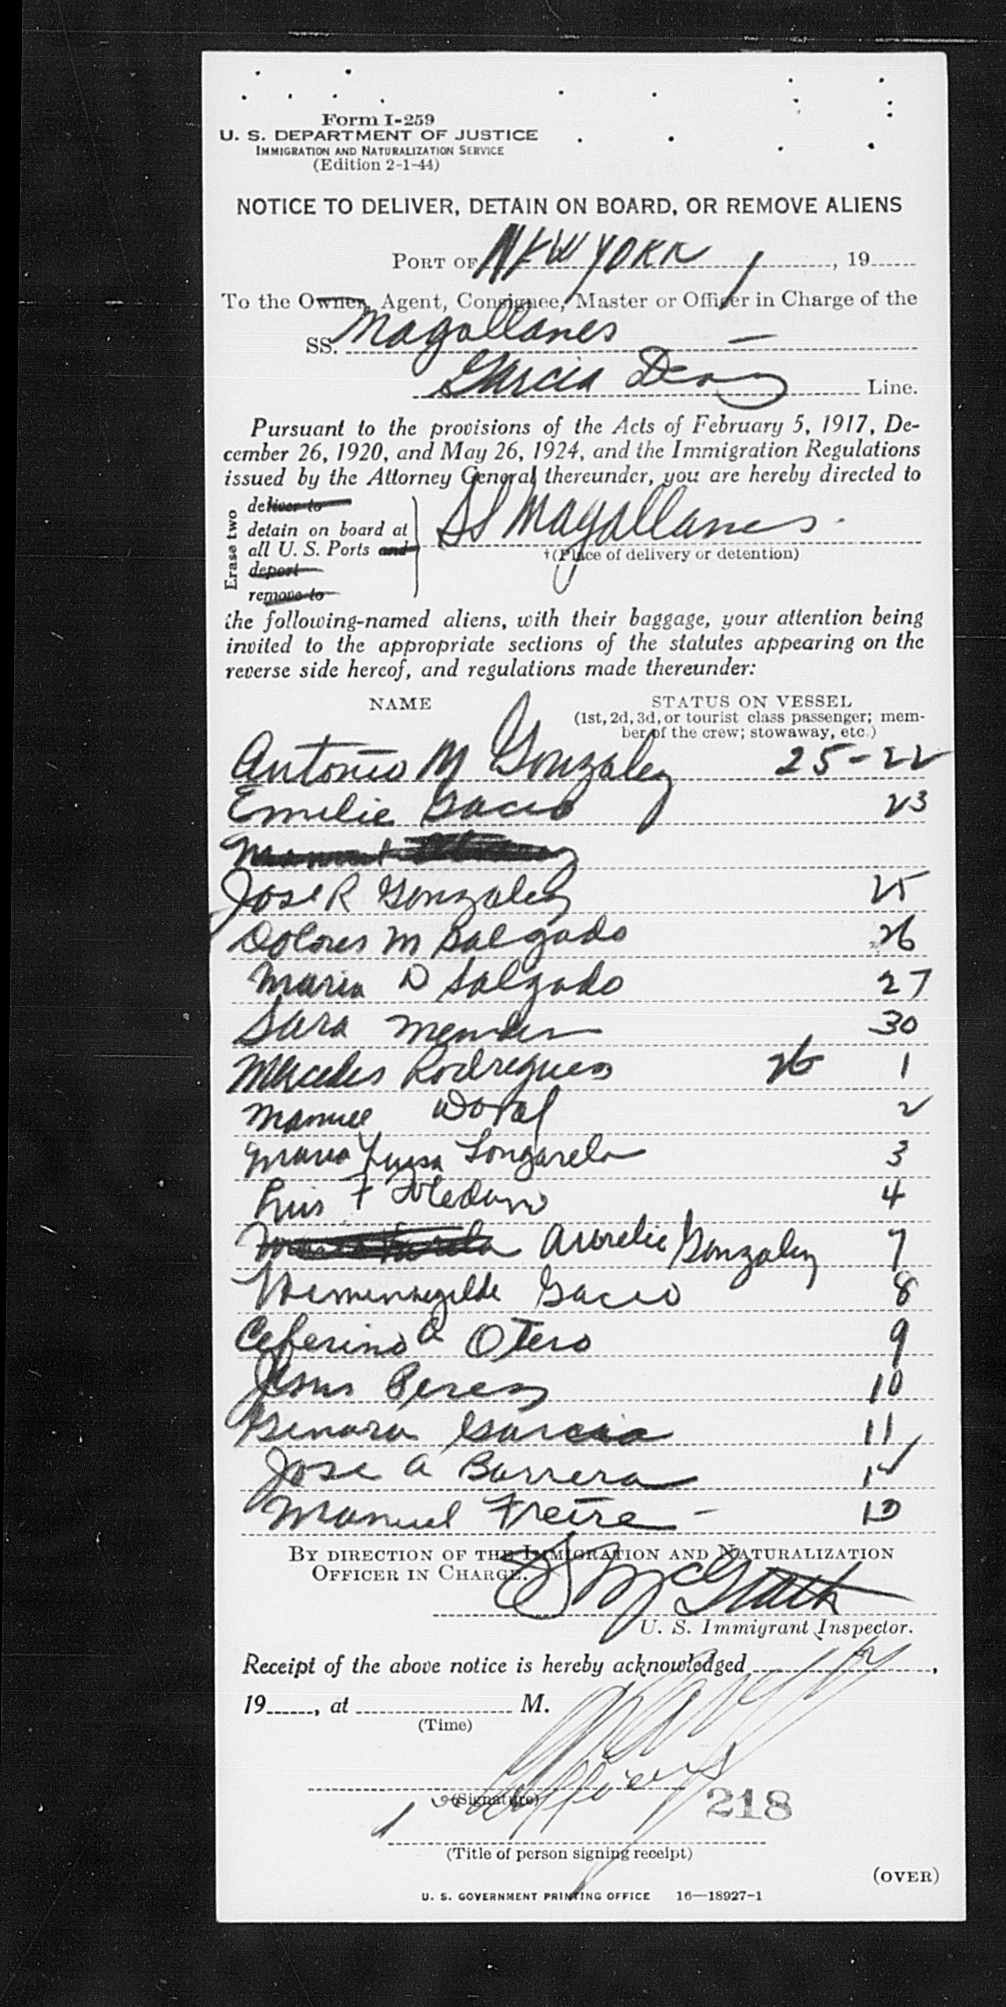 Form I-259
U. S. DEPARTMENT OF JUSTICE
IMMIGRATION AND NATURALIZATION SERVICE
(Edition 2-1-44)
NOTICE TO DELIVER, DETAIN ON BOARD, OR REMOVE ALIENS
PORT OF NEW YORK, 19
To the Owner, Agent, Consignee, Master or Officer in Charge of the
SS. Magallanes
Garcia Diaz Line.
Pursuant to the provisions of the Acts of February 5, 1917, De-
cember 26, 1920, and May 26, 1924, and the Immigration Regulations
issued by the Attorney General thereunder, you are hereby directed to
Erase two
deliver to
detain on board at
all U. S. Ports and
deport
remove to
SS Magallanes
†(Place of delivery or detention)
the following-named aliens, with their baggage, your attention being
invited to the appropriate sections of the statutes appearing on the
reverse side hereof, and regulations made thereunder:
NAME STATUS ON VESSEL
(1st, 2d, 3d, or tourist class passenger; mem-
ber of the crew; stowaway, etc.)
Antonio M Gonzalez 25-22
Emilie Gacio 23
Jose R Gonzalez 25
Dolores M Salgado 26
Maria D Salgado 27
Sara Mender 30
Mercedes Rodriguez 26 1
Manuel Doval 2
Maria Luisa Longarela 3
Luis F Toledano 4
Aurelie Gonzalez 7
Hermenegilde Gacio 8
Ceferino A Otero 9
Jesus Perez 10
Genara Garcia 11
Jose A Barrera 12
Manuel Freire - 13
BY DIRECTION OF THE IMMIGRATION AND NATURALIZATION
OFFICER IN CHARGE.
McGrath
U. S. Immigrant Inspector.
Receipt of the above notice is hereby acknowledged ,
19 , at M.
(Time)
(Signature)
218
(Title of person signing receipt)
(OVER)
U. S. GOVERNMENT PRINTING OFFICE 16—18927-1